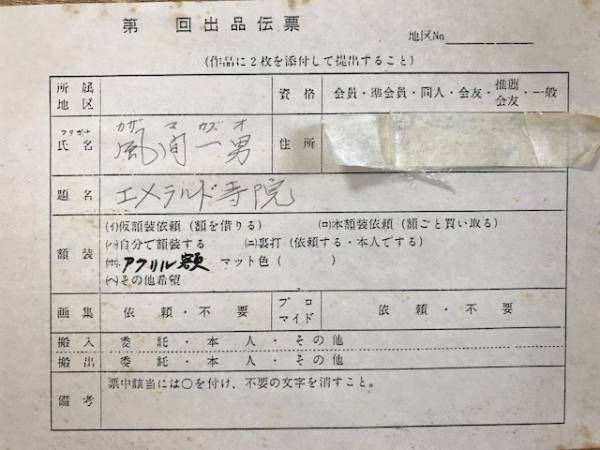 第　回出品伝票
地区No.
(作品に2枚を添付して提出すること)
所属地区
資格 会員・準会員・同人・会友・推薦会友・一般
フリガナ カザマカズオ
氏名 風間一男
住所
題名 エメラルド寺院
額装
(イ)仮額装依頼(額を借りる) (ロ)本額装依頼(額ごと買い取る)
(ハ)自分で額装する (ニ)裏打(依頼する・本人でする)
(ホ)アクリル額 マット色( )
(ヘ)その他希望
画集 依頼・不要 ブロマイド 依頼・不要
搬入 委託・本人・その他
搬出 委託・本人・その他
備考 票中該当には○を付け、不要の文字を消すこと。